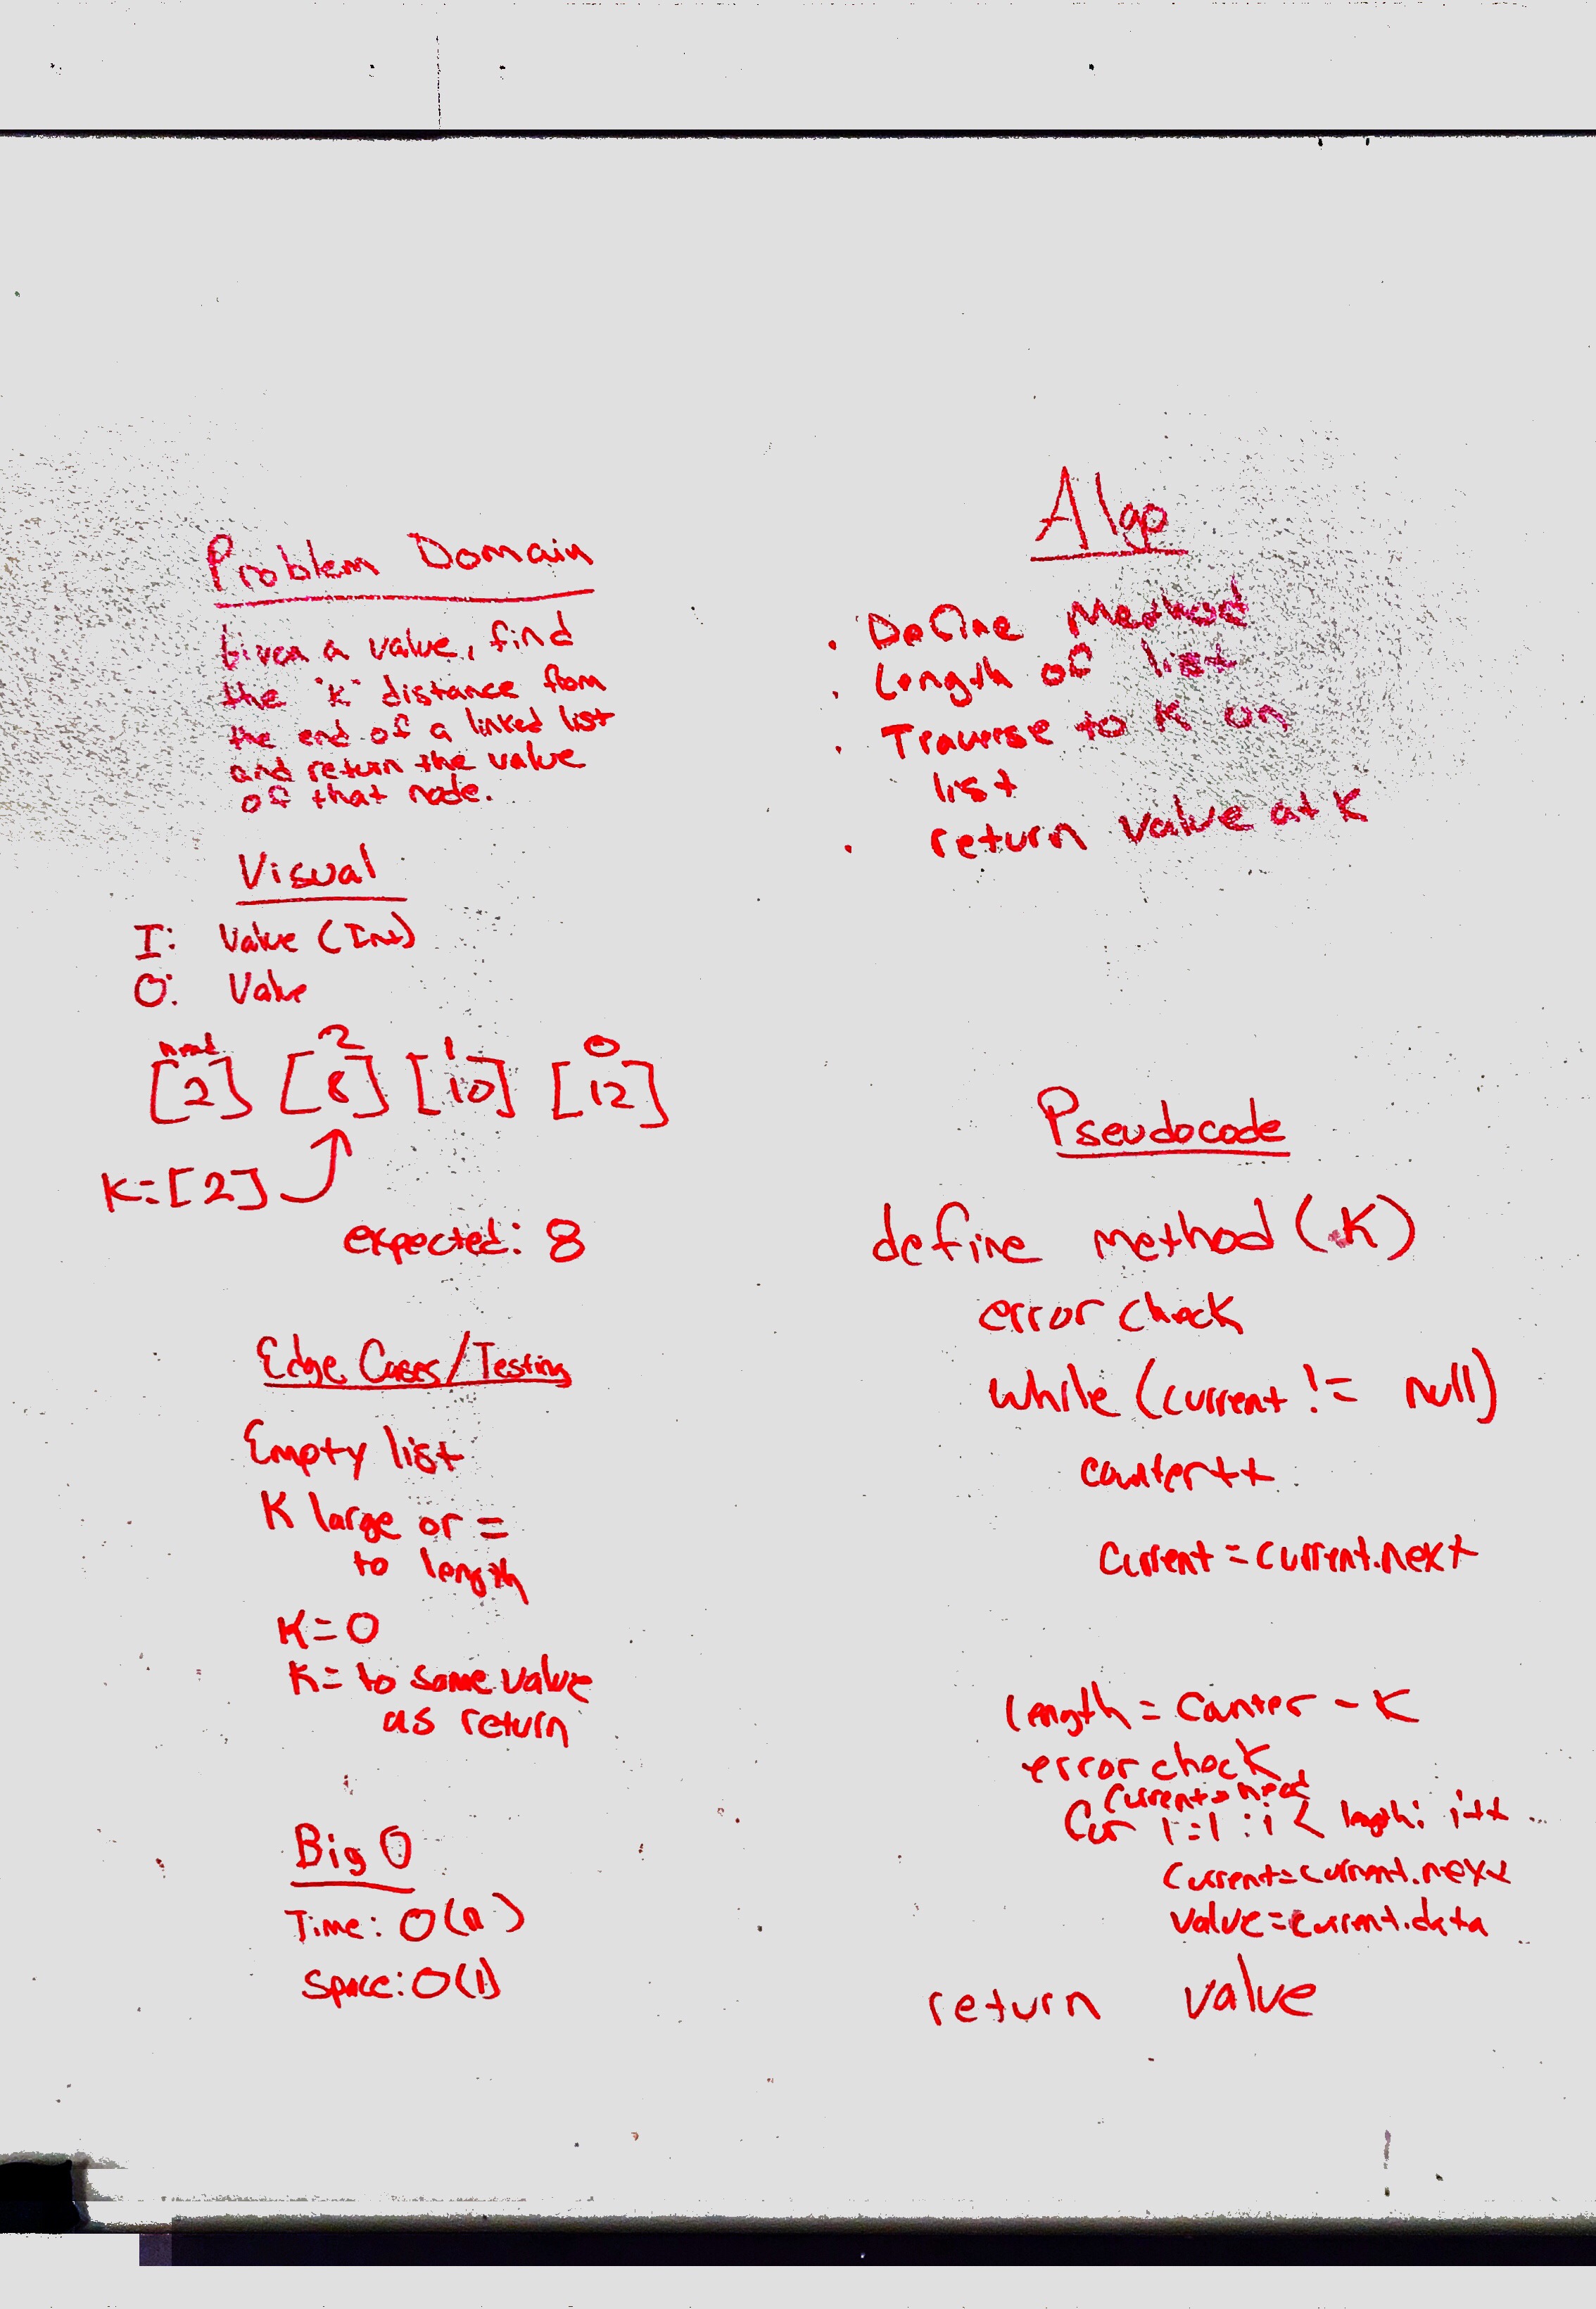 Problem Domain
Given a value, find
the "k" distance from
the end of a linked list
and return the value
of that node.
Visual
I: Value (Int)
O: Value
head 2 1 0
[2] [8] [10] [12]
K=[2]
expected: 8
Edge Cases/Testing
Empty list
K large or =
to length
K=0
K= to same value
as return
Big O
Time: O(n)
Space: O(1)
Algo
. Define Method
. Length of list
. Traverse to K on
list
. return value at K
Pseudocode
define method (K)
error check
while (current != null)
counter++
current = current.next
length = counter - K
error check
current = head
for i=1 : i < length: i++
current=current.next
value=current.data
return value